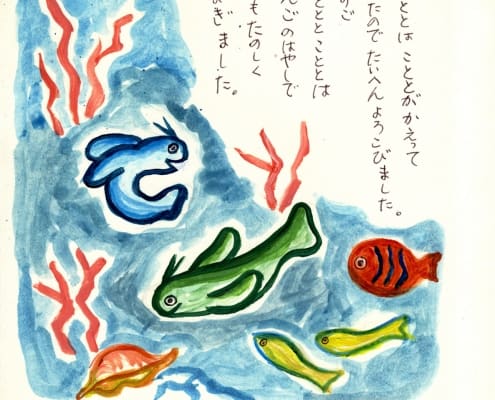 ととは こととが かえって
たので たいへん よろこびました。
のご
ととと こととは
んごのはやしで
もたのしく
ぎ ました。